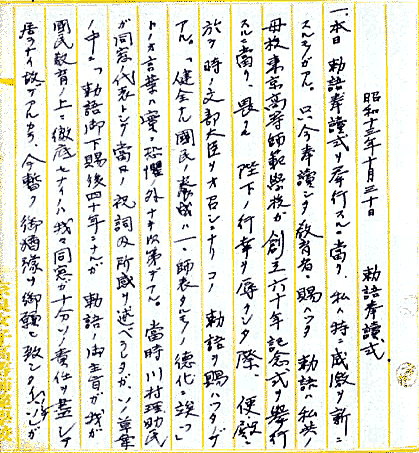 昭和十三年十月三十日　勅語奉讀式
一、本日　勅語奉讀式ヲ挙行スルニ當リ、私ハ特ニ感激ヲ新ニ
スルモノガアル。只今奉讀シタ教育者ニ賜ハツタ　勅語ハ私共ノ
母校東京高等師範學校ガ創立六十年記念式ヲ擧行
スルニ當リ、畏クモ　陛下ノ行幸ヲ辱ウシタ際、便殿ニ
於テ時ノ文部大臣ヲオ召シニナリコノ　勅語ヲ賜ハツタノデ
アル。「健全ナル國民ノ養成ハ一ニ師表タルモノノ徳化ニ俟ツ」
トノオ言葉ハ寔ニ恐懼ノ外ナキ次第デアル。當時川村理助氏
ガ同窓ノ代表トシテ當日ノ祝詞及所感ヲ述ベラレタガ、ソノ草案
ノ中ニ「勅語御下賜後四十年ニナルガ　勅語ノ御主旨ガ我ガ
國民教育ノ上ニ徹底セナイノハ我々同窓ガ十分ソノ責任ヲ盡シテ
居ラナイ故デアルカラ、今暫ク御猶豫ヲ御願ヒ致シタイ」